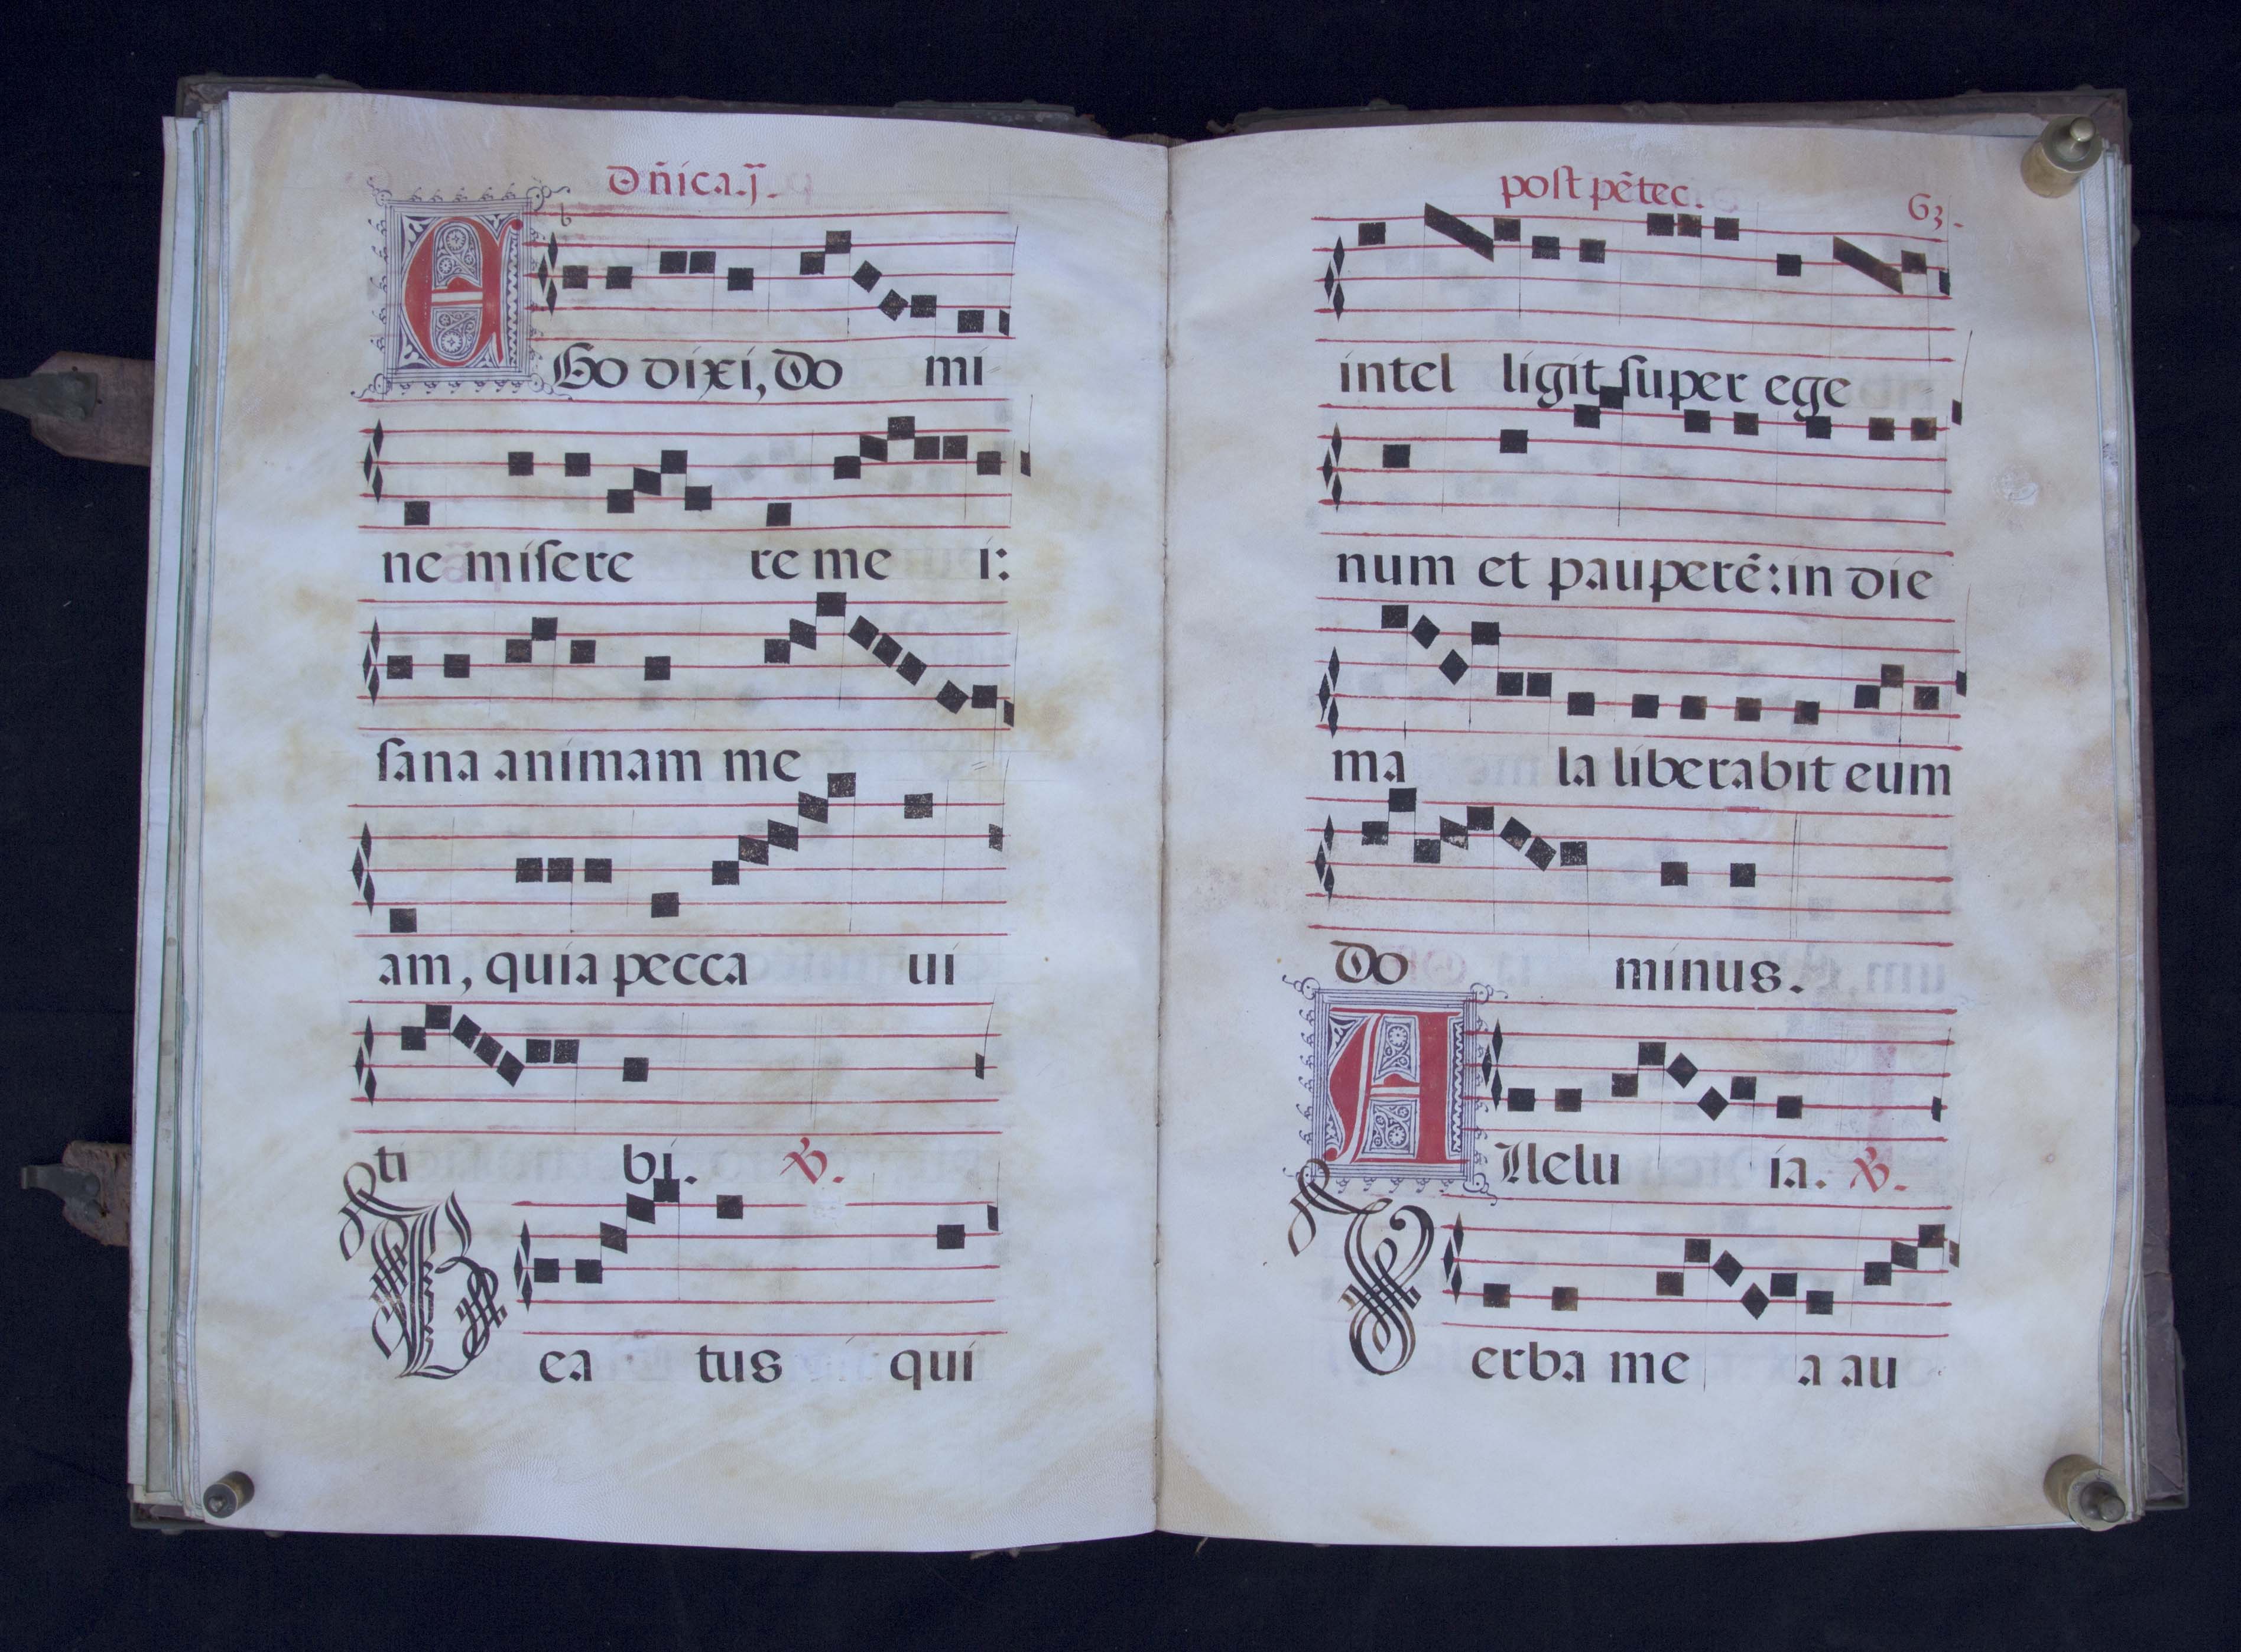 Dñica.j.
EGo dixi, Do mi
ne miſere re me i:
ſana animam me
am, quia pecca ui
ti bi. ℣.
Bea tus qui
poſt pẽtec. 63.
intel ligit ſuper ege
num et pauperẽ: in die
ma la liberabit eum
Do minus.
Allelu ia. ℣.
Verba me a au